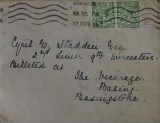 Cyril G. Sladden Esq.
2nd Lieut. 9th Worcesters.
Billeted at
The Vicarage
Basing
Basingstoke.